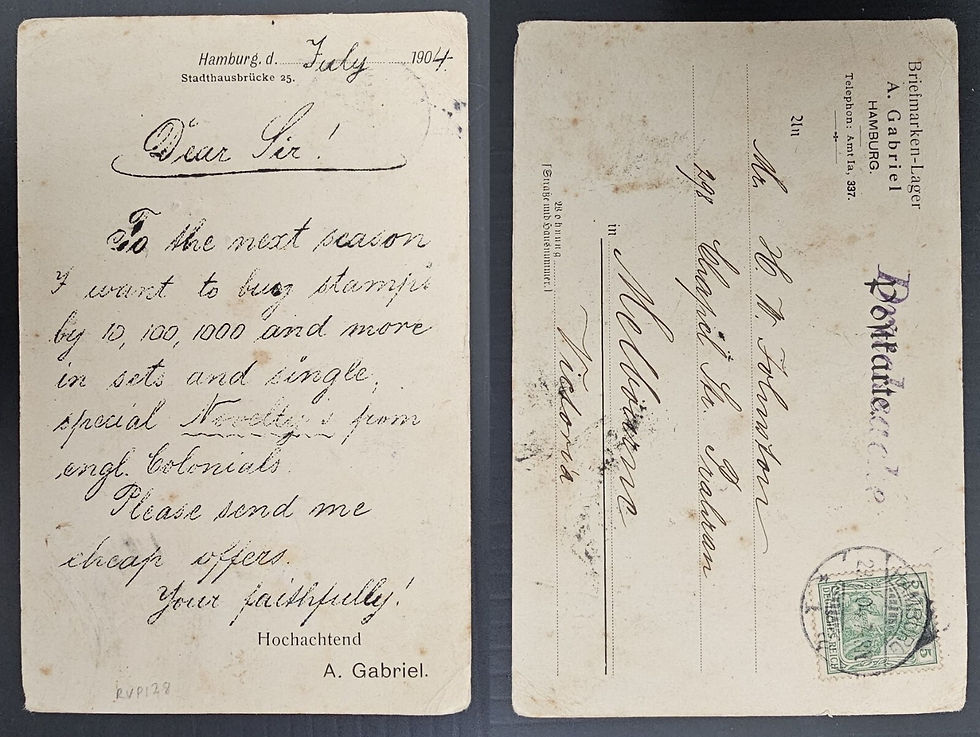 Hamburg, d. July 1904
Stadthausbrücke 25.
Dear Sir!
To the next season
I want to buy stamps
by 10, 100, 1000 and more
in sets and single,
special Novelty's from
engl. Colonials.
Please send me
cheap offers.
Your faithfully!
Hochachtend
A. Gabriel.
RVP128
Briefmarken-Lager
A. Gabriel
HAMBURG.
Telephon: Amt Ia, 337.
Postkarte
An
Mr. H W Johnston
298 Chapel Str. Prahran
in Melbourne
Victoria
Wohnung
(Straße und Hausnummer.)
HAMBURG
5
DEUTSCHES REICH